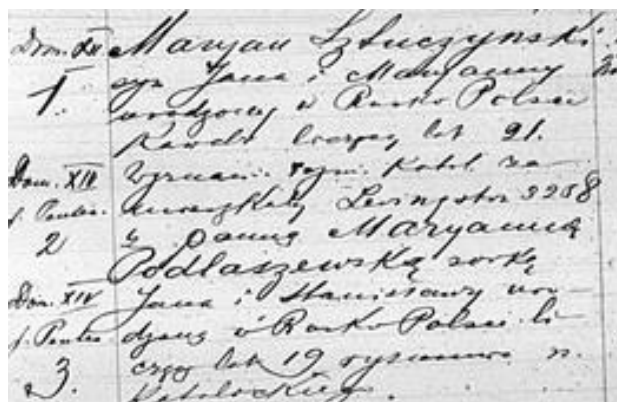 Dom. XII
1.
Dom. XIII
p. Pentec.
2
Dom. XIV
p. Pentec.
3.
Maryan Sztuczynski
syn Jana i Maryanny
urodzony w Rusko Polsce
Kawaler liczący lat 21.
wyznani. rzym. Katol. za
mieszkały Levingston 3258
z Panną Maryanną
Podlaszewską corką
Jana i Stanisławy uro-
dzoną w Rusko Polsce li
czącą lat 19 rzymsko
Katolockiego.